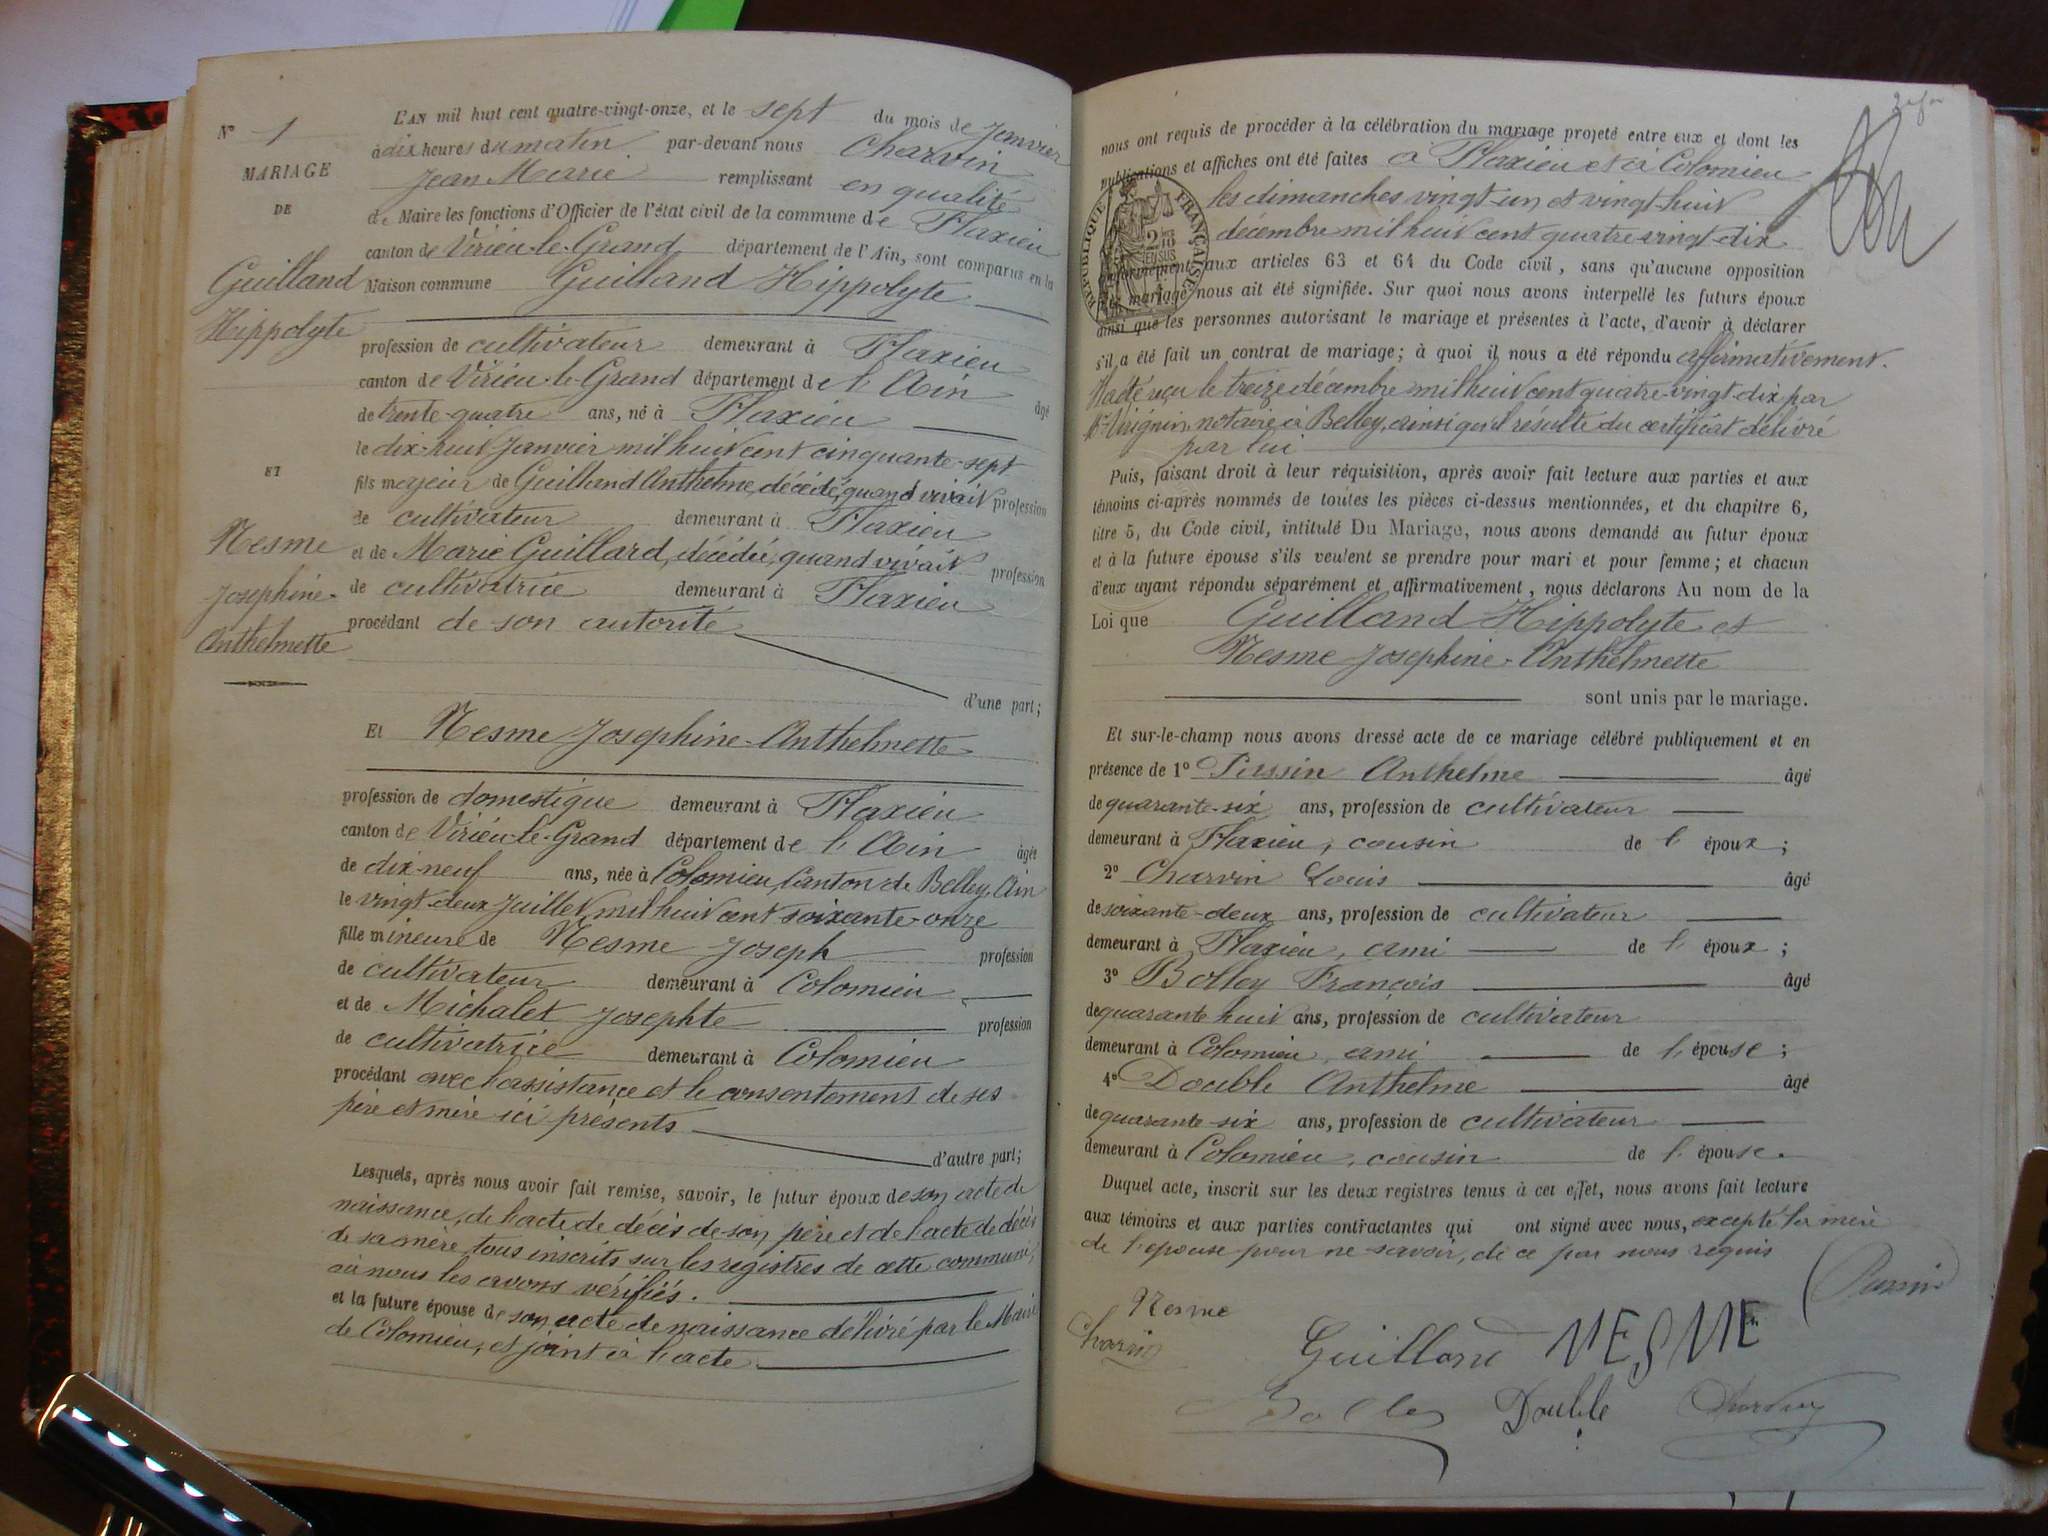 N° 1
MARIAGE
DE
Guilland
Hippolyte
ET
Nesme
Josephine-
Anthelmette
L'AN mil huit cent quatre-vingt-onze, et le sept du mois de Janvier
à dix heures du matin par-devant nous Charvin
Jean Marie remplissant en qualité
de Maire les fonctions d'Officier de l'état civil de la commune de Flaxieu
canton de Virieu-le-Grand département de l'Ain, sont comparus en la
Maison commune Guilland Hippolyte
profession de cultivateur demeurant à Flaxieu
canton de Virieu-le-Grand département de l'Ain âgé
de trente-quatre ans, né à Flaxieu
le dix-huit Janvier mil huit cent cinquante-sept
fils majeur de Guilland Anthelme, décédé, quand vivait profession
de cultivateur demeurant à Flaxieu
et de Marie Guillard, décédée, quand vivait profession
de cultivatrice demeurant à Flaxieu
procédant de son autorité
d'une part;
Et Nesme Josephine-Anthelmette
profession de domestique demeurant à Flaxieu
canton de Virieu-le-Grand département de l'Ain âgée
de dix-neuf ans, née à Colomieu, Canton de Belley, Ain
le vingt-deux Juillet mil huit cent soixante-onze
fille mineure de Nesme Joseph profession
de cultivateur demeurant à Colomieu
et de Michalet Josephte profession
de cultivatrice demeurant à Colomieu
procédant avec l'assistance et le consentement de ses
père et mère ici présents
d'autre part;
Lesquels, après nous avoir fait remise, savoir, le futur époux de son acte de
naissance, de l'acte de décès de son père et de l'acte de décès
de sa mère, tous inscrits sur les registres de cette commune,
où nous les avons vérifiés.
et la future épouse de son acte de naissance délivré par le Maire
de Colomieu, et joint à l'acte
nous ont requis de procéder à la célébration du mariage projeté entre eux et dont les
publications et affiches ont été faites à Flaxieu et à Colomieu
les dimanches vingt-un et vingt-huit
décembre mil huit cent quatre vingt-dix
conformément aux articles 63 et 64 du Code civil, sans qu'aucune opposition
mariage nous ait été signifiée. Sur quoi nous avons interpellé les futurs époux
ainsi que les personnes autorisant le mariage et présentes à l'acte, d'avoir à déclarer
s'il a été fait un contrat de mariage; à quoi il nous a été répondu affirmativement.
reçu le treize décembre mil huit cent quatre-vingt-dix par
Mᵉ Virignin, notaire à Belley, ainsi qu'il résulte du certificat délivré
par lui
RÉPUBLIQUE FRANÇAISE
Puis, faisant droit à leur réquisition, après avoir fait lecture aux parties et aux
témoins ci-après nommés de toutes les pièces ci-dessus mentionnées, et du chapitre 6,
titre 5, du Code civil, intitulé Du Mariage, nous avons demandé au futur époux
et à la future épouse s'ils veulent se prendre pour mari et pour femme; et chacun
d'eux ayant répondu séparément et affirmativement, nous déclarons Au nom de la
Loi que Guilland Hippolyte et
Nesme Josephine-Anthelmette
sont unis par le mariage.
Et sur-le-champ nous avons dressé acte de ce mariage célébré publiquement et en
présence de 1° Anthelme âgé
de quarante-six ans, profession de cultivateur
demeurant à Flaxieu, cousin de l'époux;
2° Charvin Louis âgé
de soixante-deux ans, profession de cultivateur
demeurant à Flaxieu, ami de l'époux;
3° Bolley François âgé
de quarante huit ans, profession de cultivateur
demeurant à Colomieu, ami de l'épouse;
4° Double Anthelme âgé
de quarante-six ans, profession de cultivateur
demeurant à Colomieu, cousin de l'épouse.
Duquel acte, inscrit sur les deux registres tenus à cet effet, nous avons fait lecture
aux témoins et aux parties contractantes qui ont signé avec nous, excepté la mère
de l'épouse pour ne savoir, de ce par nous requis
Nesme
Charvin
Guilland NESME
Bolley Double